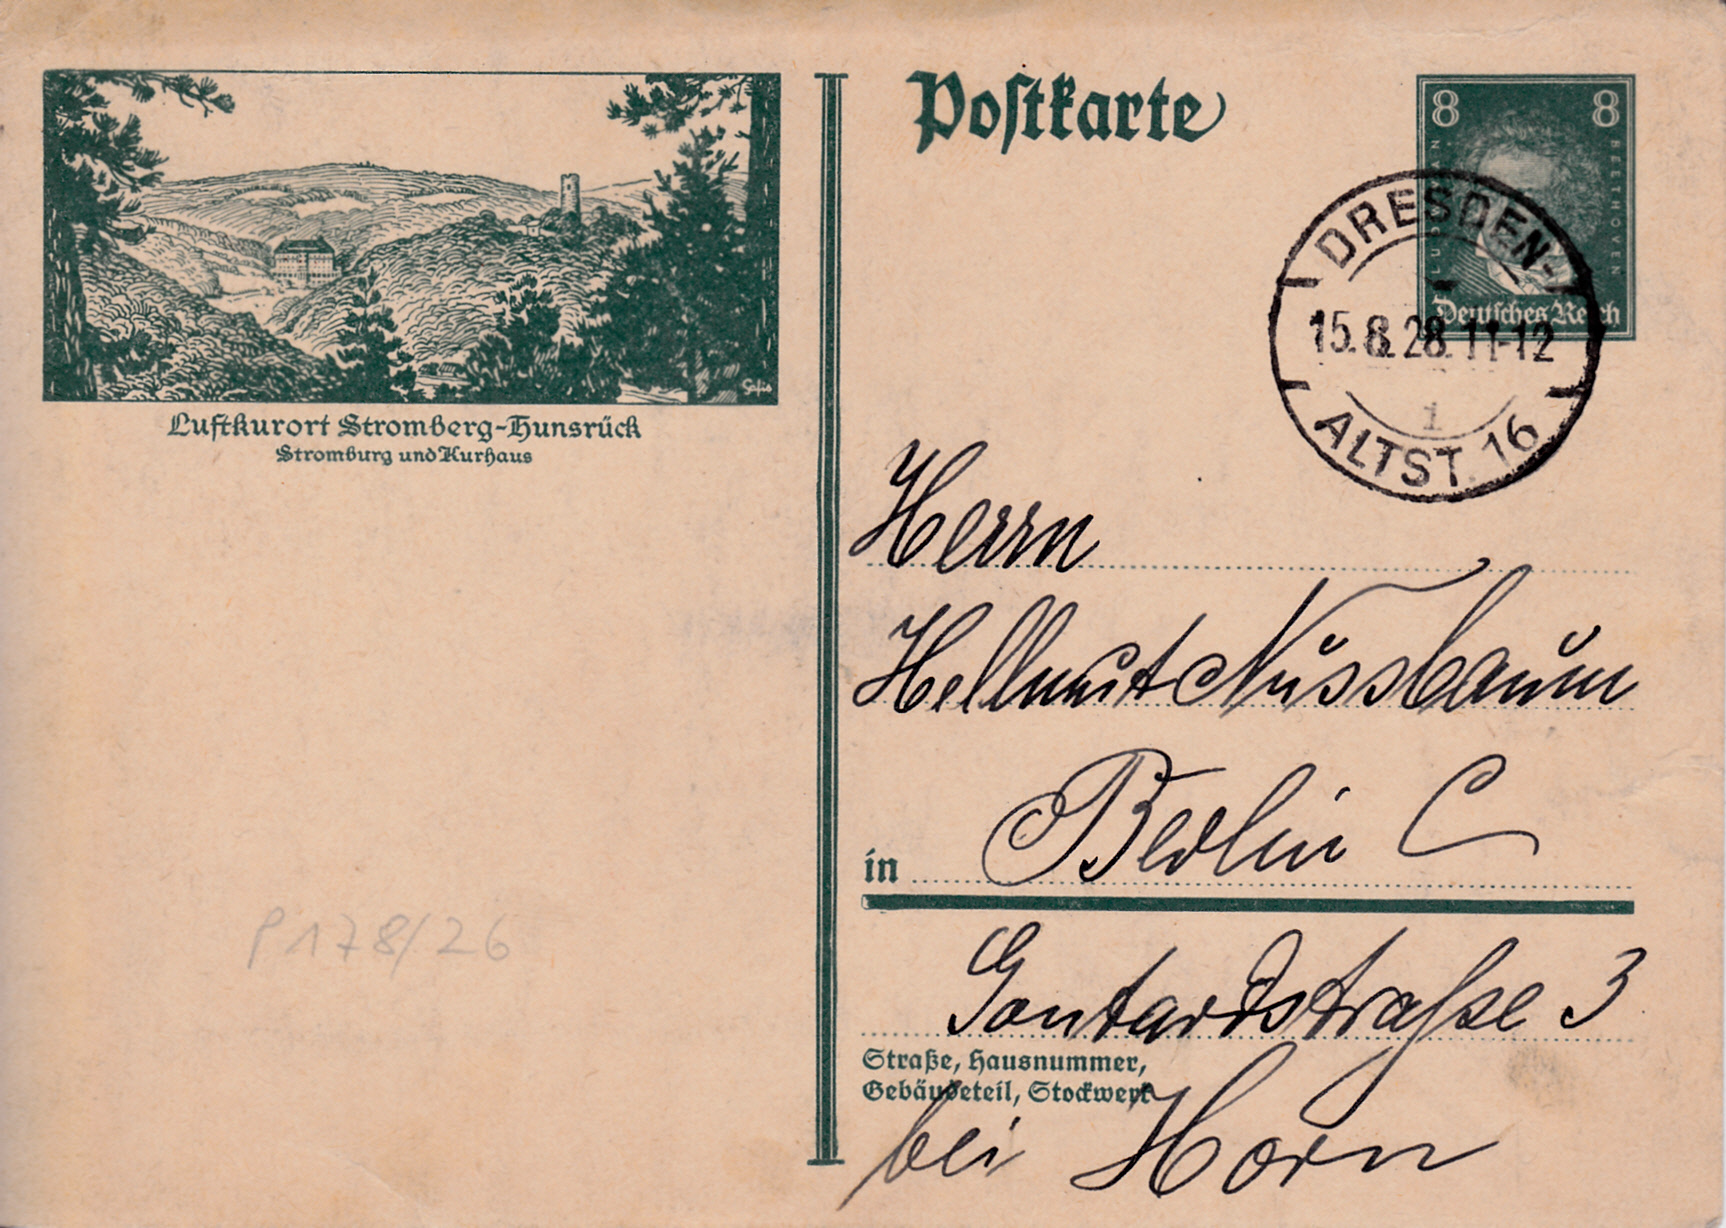 Postkarte
8 8
LUDW. VAN BEETHOVEN
Deutsches Reich
DRESDEN-
15.8.28.11-12
1
ALTST. 16
Luftkurort Stromberg-Hunsrück
Stromburg und Kurhaus
Herrn
Hellmut Nussbaum
in Berlin C
Gontardstraße 3
Straße, Hausnummer,
Gebäudeteil, Stockwerk
bei Horn
P 178/26